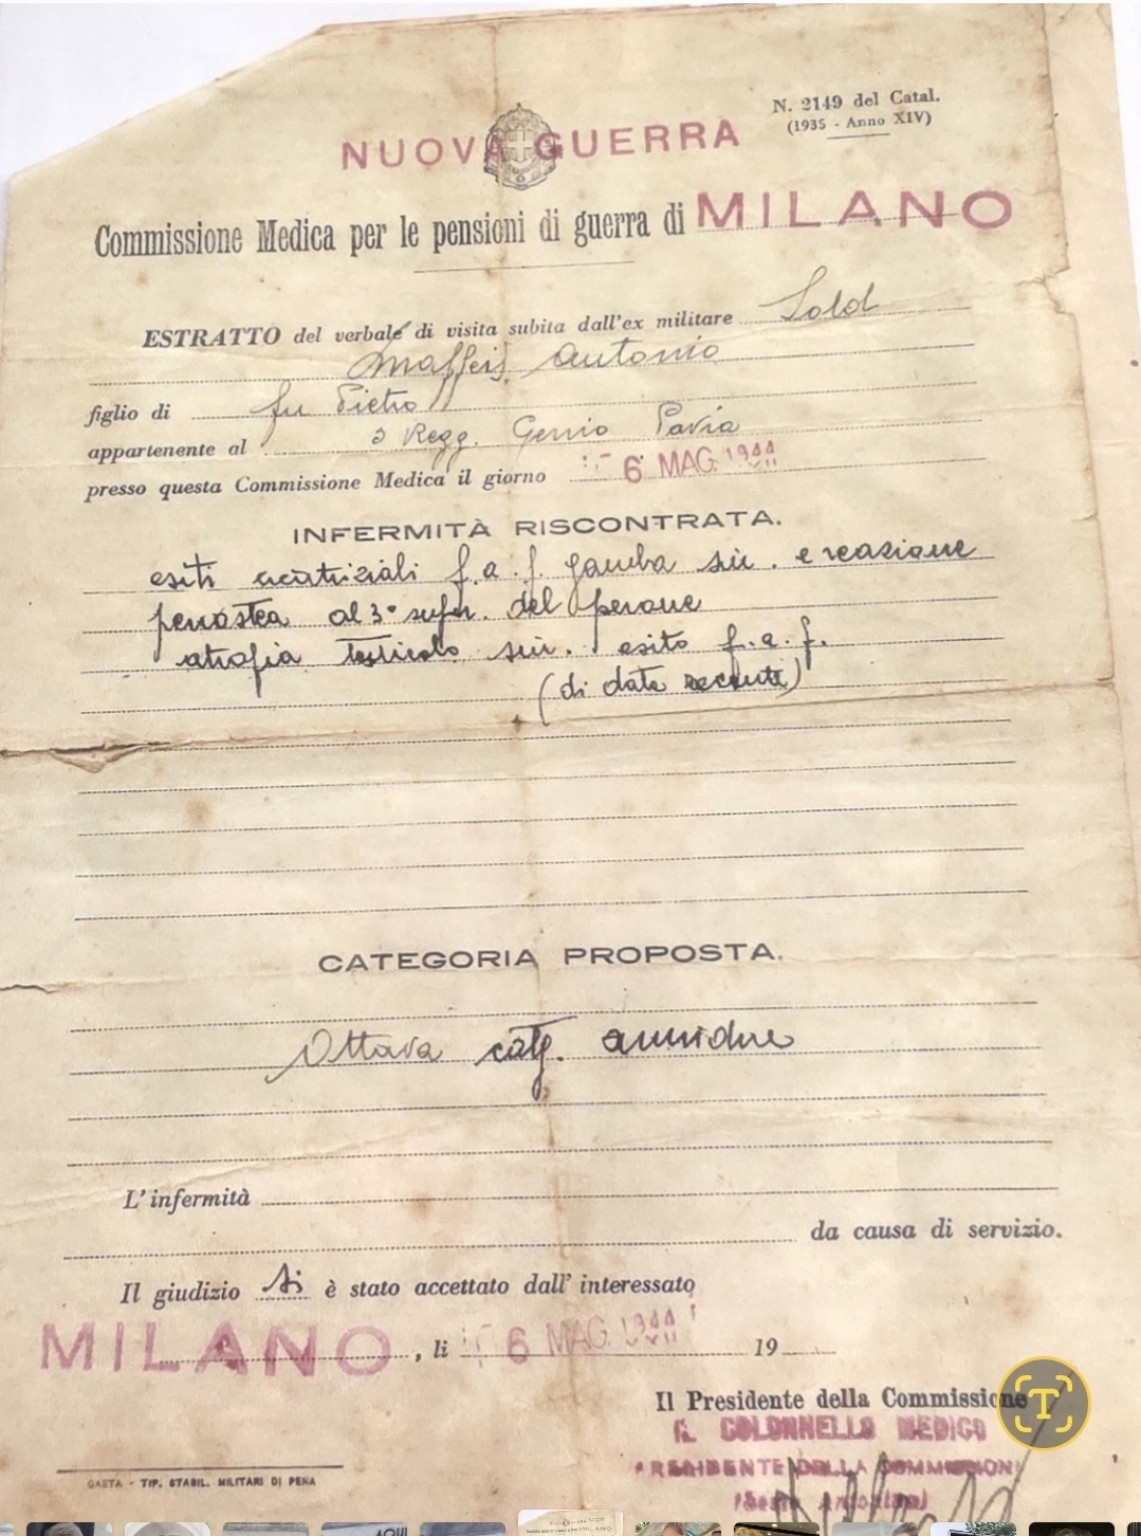 N. 2149 del Catal.
(1935 - Anno XIV)
NUOVA GUERRA
Commissione Medica per le pensioni di guerra di MILANO
ESTRATTO del verbale di visita subita dall'ex militare Sold
Maffeis Antonio
figlio di fu Pietro
appartenente al 3 Regg. Genio Pavia
presso questa Commissione Medica il giorno 6 MAG. 1944
INFERMITÀ RISCONTRATA.
esiti cicatriziali f.a.f. gamba sin. e reazione
periostea al 3° super. del perone
atrofia testicolo sin. esito f.a.f.
(di data recente)
CATEGORIA PROPOSTA.
Ottava catg. annidue
L'infermità
da causa di servizio.
Il giudizio si è stato accettato dall'interessato
MILANO, li 6 MAG. 1944 19
Il Presidente della Commissione
IL COLONNELLO MEDICO
PRESIDENTE DELLA COMMISSIONE
GAETA - TIP. STABIL. MILITARI DI PENA